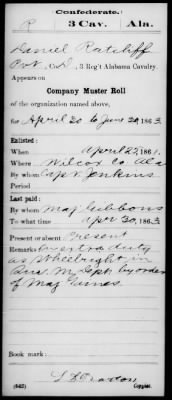 Confederate.
R 3 Cav. Ala.
Daniel Ratcliff
Pvt, Co. D, 3 Reg't Alabama Cavalry.
Appears on
Company Muster Roll
of the organization named above,
for April 30 to June 30, 1863
Enlisted:
When April 25, 1861.
Where Wilcox Co. Ala
By whom Capt. Jenkins
Period
Last paid:
By whom Maj Gibbons
To what time Apr 30, 1863
Present or absent: Present
Remarks: On extra duty
as Wheelwright in
M. Dept. by order
of Maj Gaines.
Book mark:
(642) Copyist.